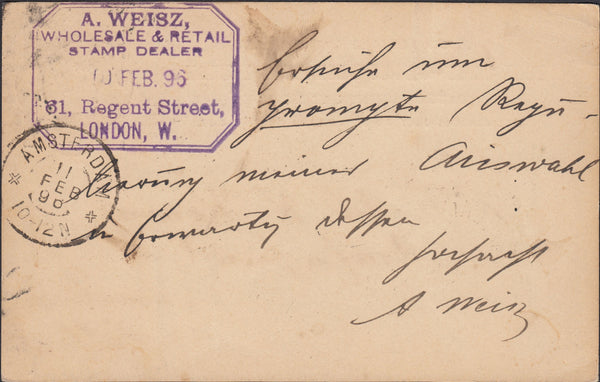 A. WEISZ,
WHOLESALE & RETAIL
STAMP DEALER
10 FEB. 96
61, Regent Street,
LONDON, W.
AMSTERDAM
11
FEB
96
10-12N
Ersuche um
prompte Regu-
lierung meiner Auswahl
u Erwarty dessen
hochacht
A Weisz